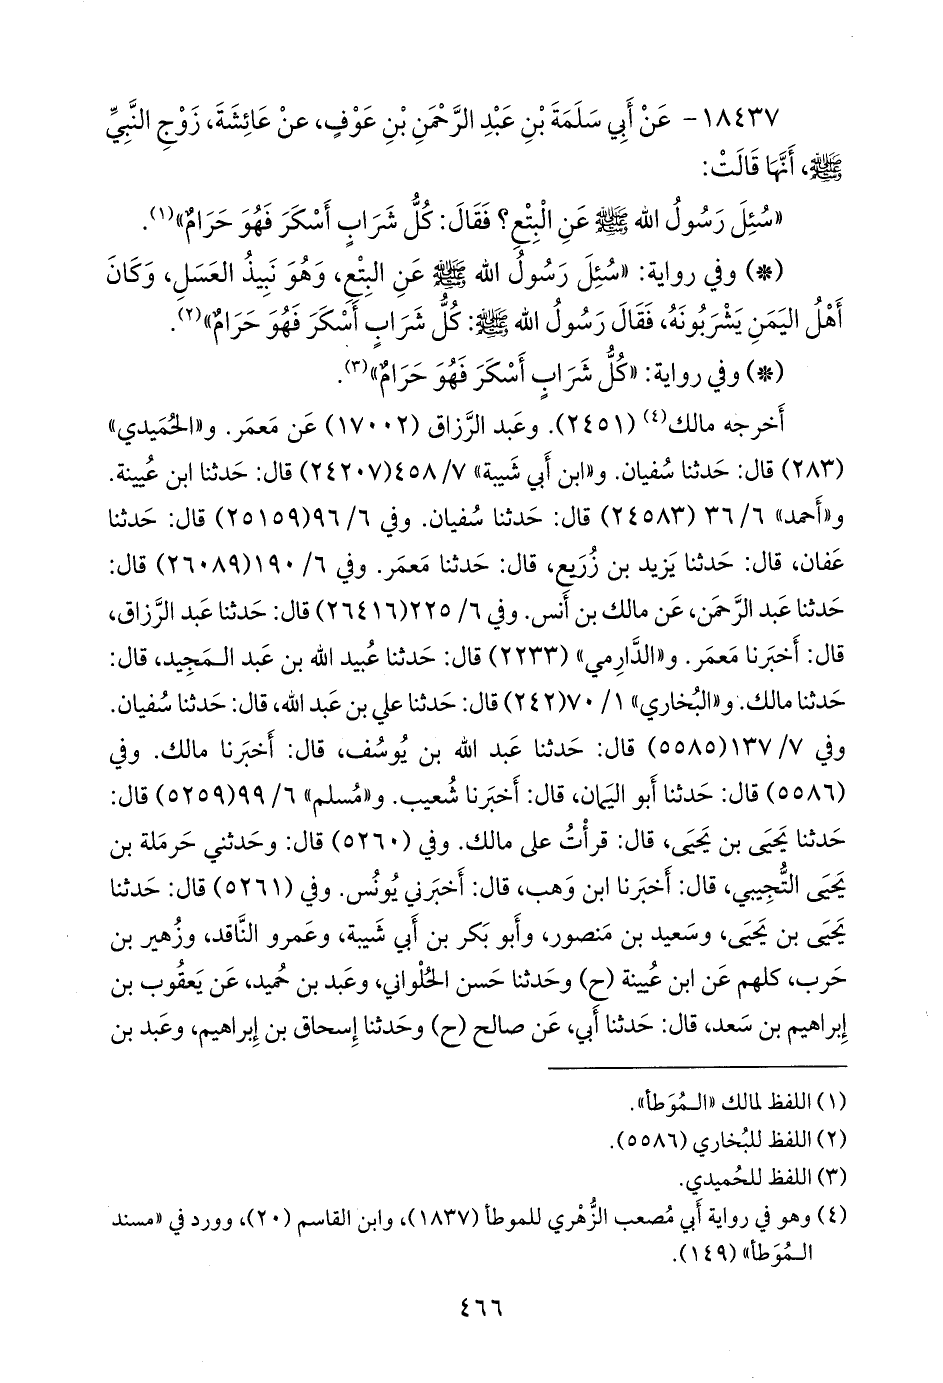 ١٨٤٣٧- عَنْ أَبِي سَلَمَةَ بْنِ عَبْدِ الرَّحْمَنِ بْنِ عَوْفٍ، عنْ عَائِشَةَ، زَوْجِ النَّبِيِّ
ﷺ، أَنَّهَا قَالَتْ:
«سُئِلَ رَسُولُ الله ﷺ عَنِ الْبِتْعِ؟ فَقَالَ: كُلُّ شَرَابٍ أَسْكَرَ فَهُوَ حَرَامٌ»(١).
(*) وفي رواية: «سُئِلَ رَسُولُ الله ﷺ عَنِ البِتْعِ، وَهُوَ نَبِيذُ العَسَلِ، وَكَانَ
أَهْلُ اليَمَنِ يَشْرَبُونَهُ، فَقَالَ رَسُولُ الله ﷺ: كُلُّ شَرَابٍ أَسْكَرَ فَهُوَ حَرَامٌ»(٢).
(*) وفي رواية: «كُلُّ شَرَابٍ أَسْكَرَ فَهُوَ حَرَامٌ»(٣).
أَخرجه مالك(٤) (٢٤٥١). وعَبد الرَّزاق (١٧٠٠٢) عَن مَعمَر. و«الحُمَيدي»
(٢٨٣) قال: حَدثنا سُفيان. و«ابن أَبي شَيبة» ٧/ ٤٥٨(٢٤٢٠٧) قال: حَدثنا ابن عُيينة.
و«أَحمد» ٦/ ٣٦ (٢٤٥٨٣) قال: حَدثنا سُفيان. وفي ٦/ ٩٦(٢٥١٥٩) قال: حَدثنا
عَفان، قال: حَدثنا يَزيد بن زُرَيع، قال: حَدثنا مَعمَر. وفي ٦/ ١٩٠(٢٦٠٨٩) قال:
حَدثنا عَبد الرَّحمَن، عَن مالك بن أَنس. وفي ٦/ ٢٢٥(٢٦٤١٦) قال: حَدثنا عَبد الرَّزاق،
قال: أَخبَرنا مَعمَر. و«الدَّارِمي» (٢٢٣٣) قال: حَدثنا عُبيد الله بن عَبد الـمَجيد، قال:
حَدثنا مالك. و«البُخاري» ١/ ٧٠(٢٤٢) قال: حَدثنا علي بن عَبد الله، قال: حَدثنا سُفيان.
وفي ٧/ ١٣٧(٥٥٨٥) قال: حَدثنا عَبد الله بن يُوسُف، قال: أَخبَرنا مالك. وفي
(٥٥٨٦) قال: حَدثنا أَبو اليَمان، قال: أَخبَرنا شُعيب. و«مُسلم» ٦/ ٩٩(٥٢٥٩) قال:
حَدثنا يَحيَى بن يَحيَى، قال: قرأْتُ على مالك. وفي (٥٢٦٠) قال: وحَدثني حَرمَلة بن
يَحيَى التُّجِيبي، قال: أَخبَرنا ابن وَهب، قال: أَخبَرني يُونُس. وفي (٥٢٦١) قال: حَدثنا
يَحيَى بن يَحيَى، وسَعيد بن مَنصور، وأَبو بَكر بن أَبي شَيبة، وعَمرو النَّاقد، وزُهير بن
حَرب، كلهم عَن ابن عُيينة (ح) وحَدثنا حَسن الحُلْواني، وعَبد بن حُميد، عَن يَعقُوب بن
إِبراهيم بن سَعد، قال: حَدثنا أَبي، عَن صالح (ح) وحَدثنا إِسحاق بن إِبراهيم، وعَبد بن
(١) اللفظ لمالك «الـمُوَطأ».
(٢) اللفظ للبُخاري (٥٥٨٦).
(٣) اللفظ للحُميدي.
(٤) وهو في رواية أَبي مُصعب الزُّهْري للموطأ (١٨٣٧)، وابن القاسم (٢٠)، وورد في «مسند
الـمُوَطأ» (١٤٩).
٤٦٦